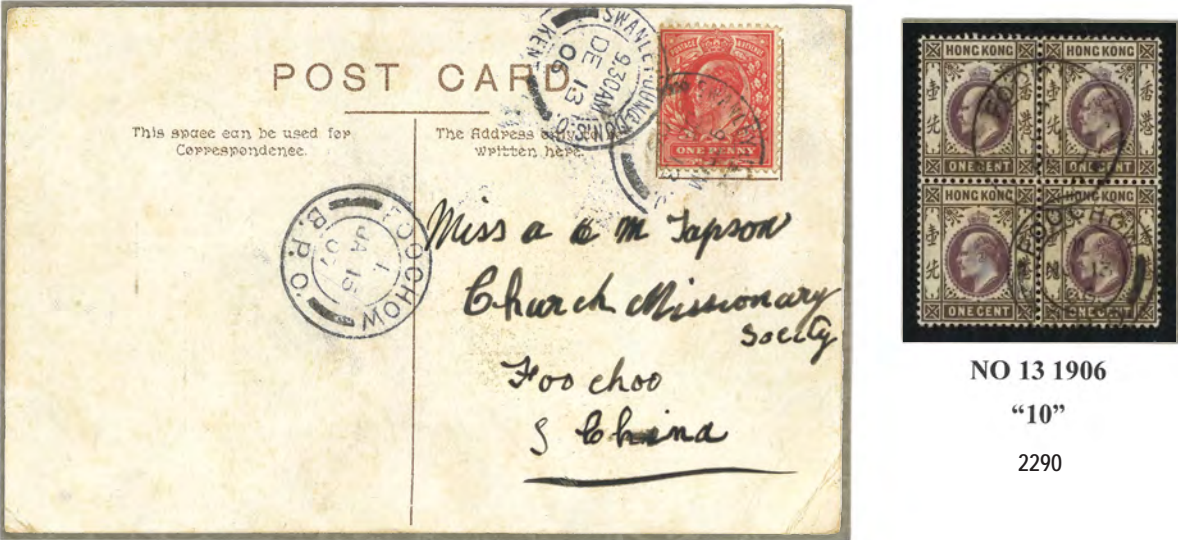 POST CARD
This space can be used for
Correspondence.
The Address only
written here.
SWANLEY JUNCTION S.O.
9.30AM
DE 13
06
KENT
ONE PENNY
FOOCHOW
1
JA 15
07
B.P.O.
Miss A C M Tapson
Church Missionary
Society
Foo choo
S China
HONG KONG
壹
港
香
ONE CENT
HONG KONG
壹
港
香
ONE CENT
HONG KONG
壹
港
香
ONE CENT
HONG KONG
壹
港
香
ONE CENT
FOOCHOW
NO 13 1906
“10”
2290